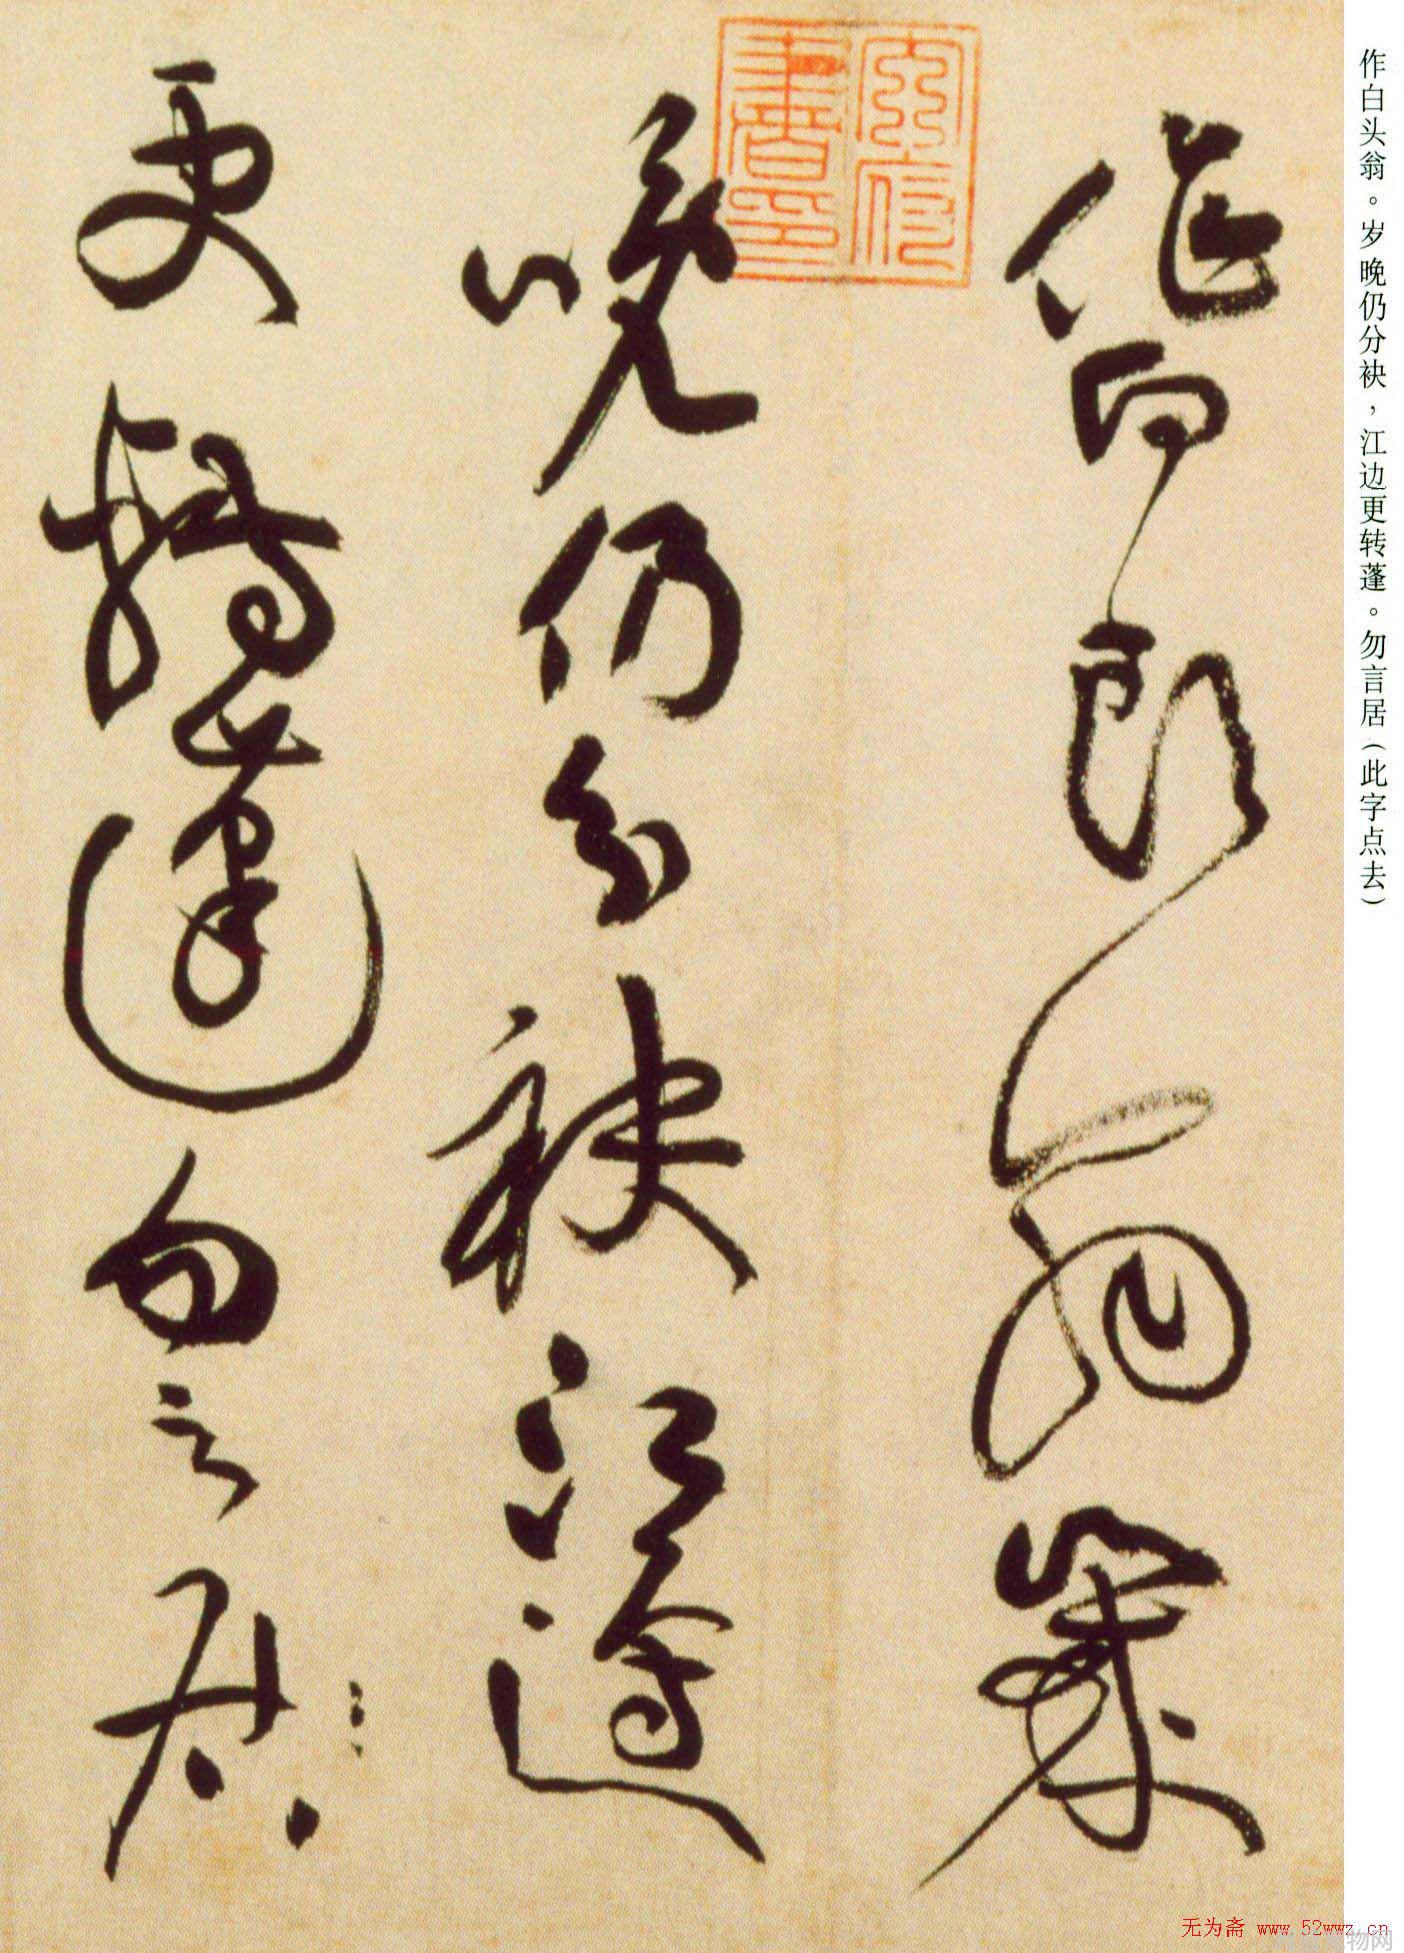 作白头翁。岁晚仍分袂，江边更转蓬。勿言居(此字点去)
作白頭翁歲
晚仍分袂江邊
更轉蓬勿言居
无为斋 www.52wwz.cn
物网